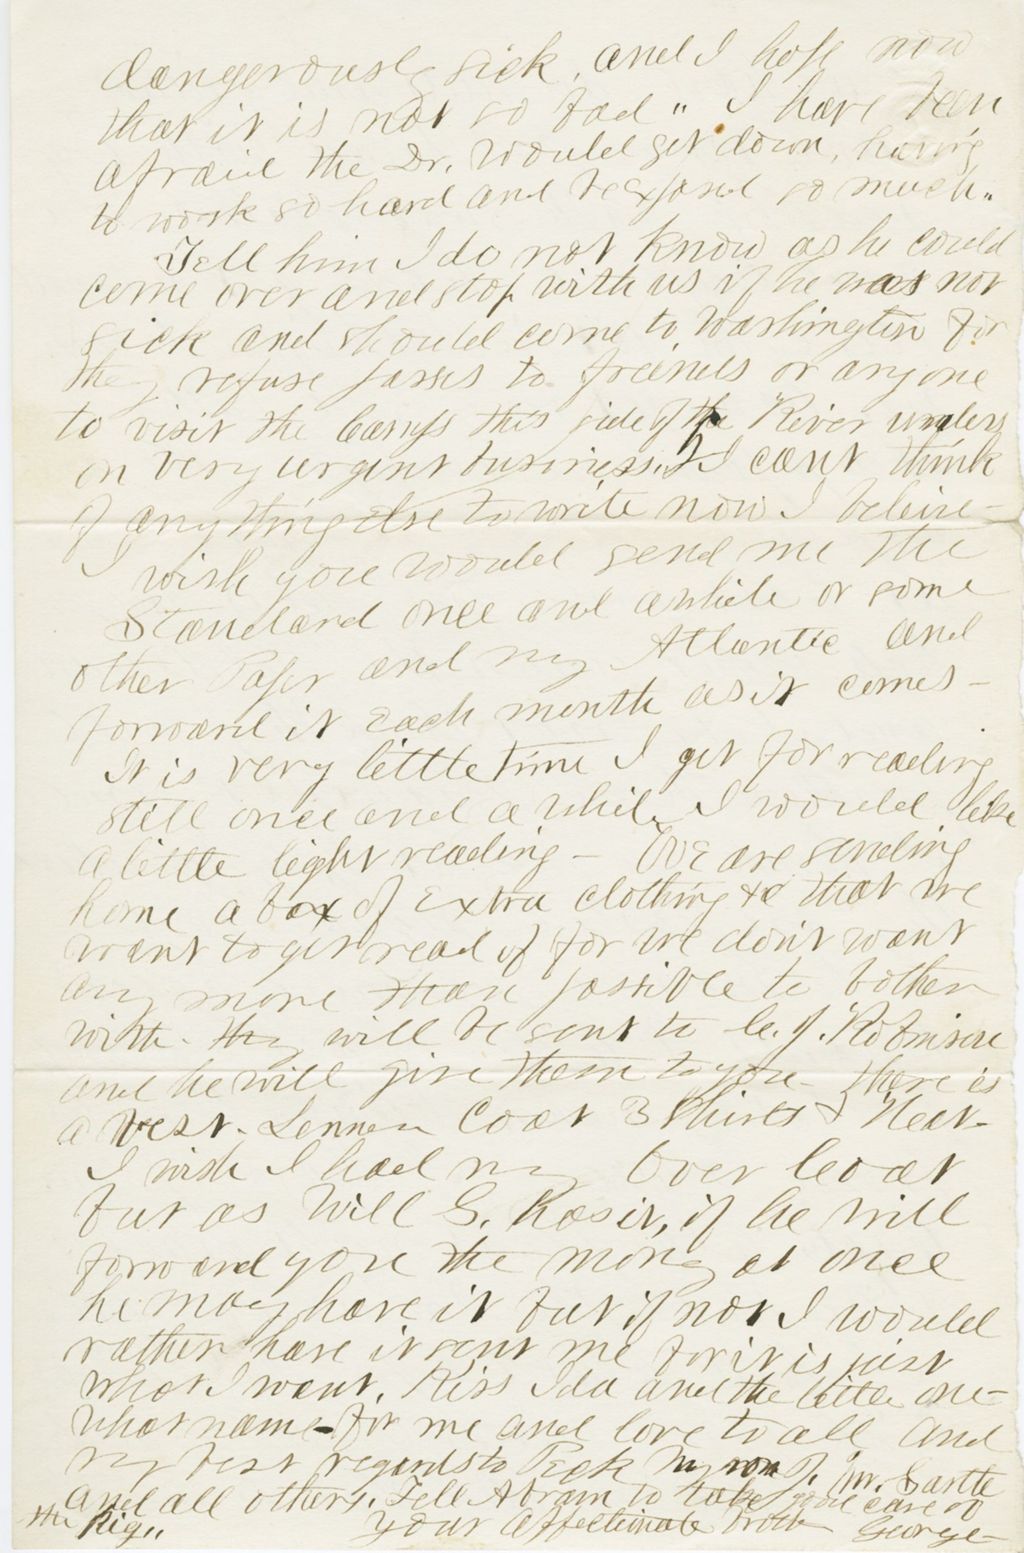 dangerously sick, and I hope now
that it is not so bad" I have been
afraid the Dr. would get down, having
to work so hard and be exposed so much"
Tell him I do not know as he could
come over and stop with us if he was not
sick and should come to Washington for
they refuse passes to freinds or anyone
to visit the Camps this side of the River unless
on very urgent business. I cant think
of anything else to write now I believe -
wish you would send me the
Standard once and awhile or some
other Paper and my Atlantic and
forward it each month as it comes -
It is very little time I get for reading
still once and a while I would like
a little light reading - We are sending
home a box of extra clothing &c that we
want to get read of for we don't want
any more than possible to bother
with. they will be sent to C. J. Robinson
and he will give them to you - there is
a vest. Lennen Coat 3 Shirts &
I wish I had my Over Coat
but as Will S. has it, if he will
forward you the money at once
he may have it but if not I would
rather have it sent me for it is just
what I want. Kiss Ida and the little one -
what name - for me and love to all and
my best regards to Peck Mr.
and all others. Tell Abram to take good care of
the Pig" your affectionate Broth George -